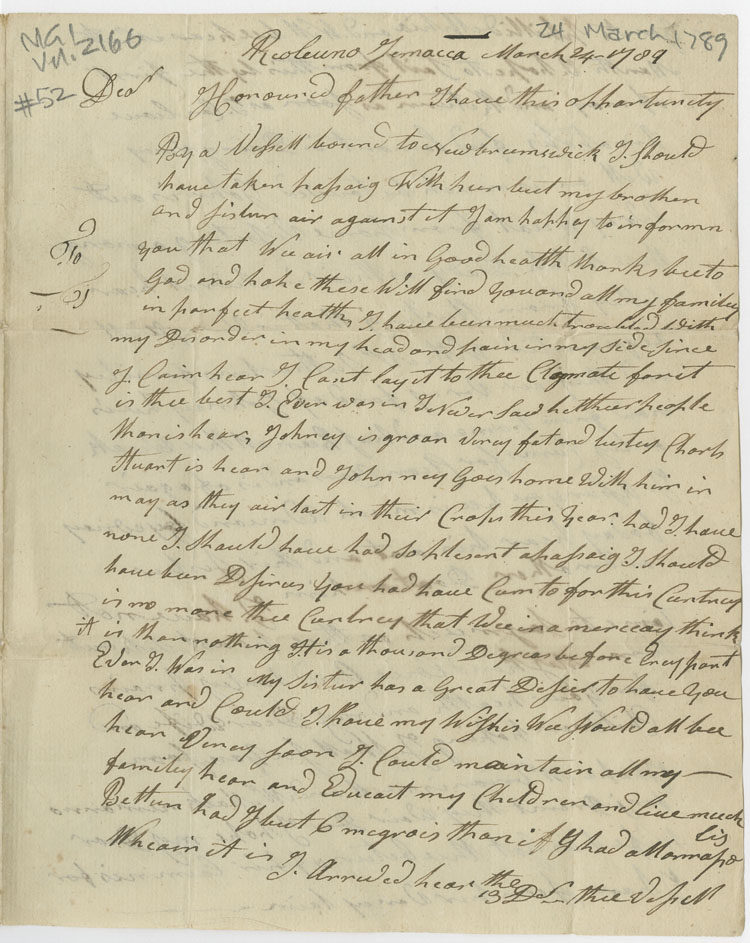 MG1
Vol. 2166
#52
24 March 1789
Jemacca March 24-1789
Dear
Honoured father I have this opportunity
By a Vessell bound to Newbrumswick I Should
have taken passaig With hur but my brother
and sistur air against it I am happey to informn
you that Wee air all in Good health thanks bee to
God and hope these Will find you and all my familey
in parfect health, I have been much troubled with
my Disorder in my head and pain in my side since
I Caim hear I Cant lay it to thee Clymate for it
is thee best I Ever was in I Never Saw helthier people
than is hear, Johney is groan verey fat and lustey Charls
Stuart is hear and Johnney Goes home With him in
may as they air last in their Crops this Year. had I have
none I Should have had so plesent a passaig I Should
have been Desirus you had have Cum to for this Cuntrey
is no more thee Cuntrey that Wee in amereca think
it is than nothing It is a thousand Degrees before Eney part
Ever I Was in My Sistur has a Great Desier to have you
hear and Could I have my Wishis Wee Would all bee
hear verey soon I Could maintain all my
familey hear and Educait my Children and live much
Bettur had I but 6 megrois than if I had allannapo
lis
Wheair it is I Arrived hear the 13 Der thee Vessell
To